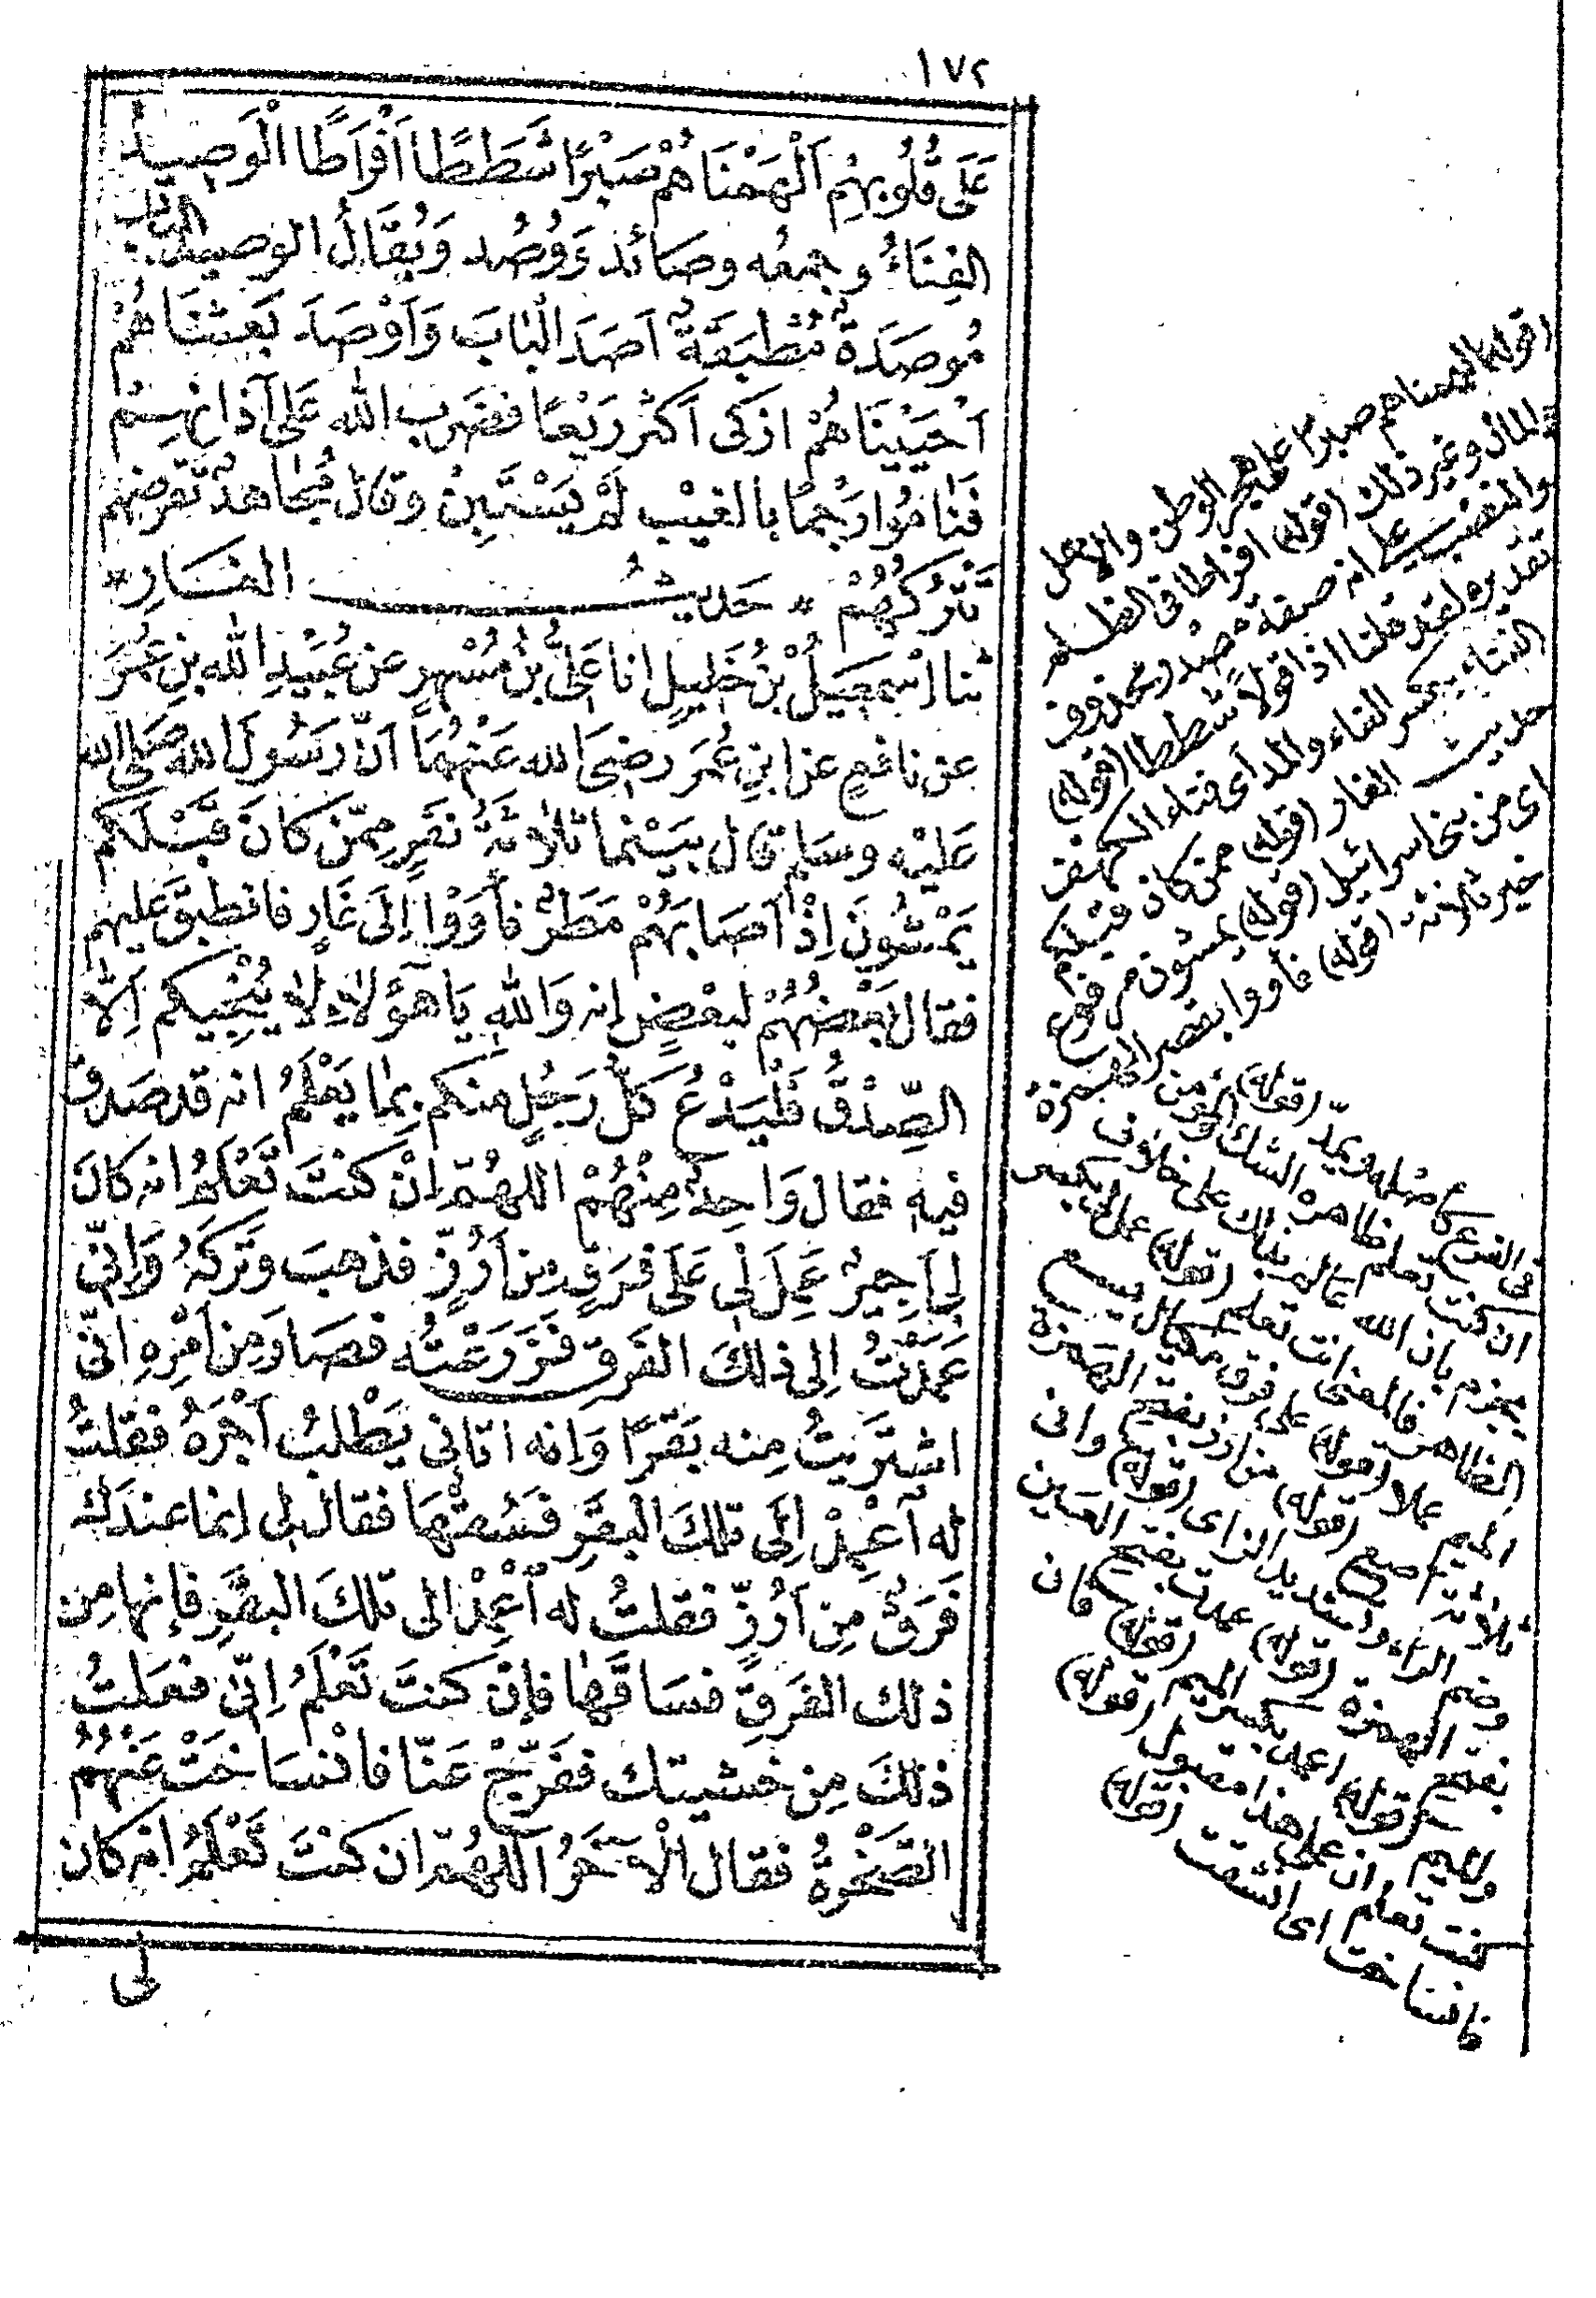 ١٧٢
عَلَى قُلُوبِهِمْ اَلْهَمْنَاهُمْ صَبْرًا شَطَطًا اَفْرَاطًا الْوَصِيدُ
الفِنَاءُ وجمعُه وصَائد وَوُصُد وَيُقَالُ الوصيد الباب
مُوصَدَةٌ مُطْبَقَةٌ اَصَدَ الْبَابَ وَاَوْصَدَ بَعَثْنَاهُمْ
اَحْيَيْنَاهُمْ ازكى اَكثرُ رَيْعًا فضَرب الله عَلى آذَانِهِمْ
فَنَامُوا رَجْمًا بالغيْب لَمْ يَسْتَبِنْ وقال مُجاهدٌ تَقرضهم
تَتْرُكُهُمْ * حَديثُ الغَارِ *
ثنا اسْمعِيلُ بْنُ خَلِيلٍ انا عَلِىُّ بْنُ مُسْهِرٍ عن عُبَيْدِ الله بنِ عُمَرَ
عن نافعٍ عن ابنِ عُمَرَ رضىَ الله عَنْهُمَا اَنّ رَسُولَ الله صَلى الله
عَلَيْه وسَلم قال بَيْنَما ثلاثَةُ نَفَرٍ مِمّن كَانَ قَبْلَكم
يَمْشُونَ اِذْ اَصَابَهُمْ مَطَرٌ فأوَوْا اِلَى غَارٍ فانطبق عَليهم
فقالَ بَعْضُهُمْ لبَعْضٍ اِنه وَاللهِ يَا هؤلاءِ لا يُنْجِيكم اِلاّ
الصِّدْقُ فَلْيَدْعُ كلُّ رَجُلٍ منكم بِما يَعْلَمُ انه قد صَدق
فيه فقال وَاحِدٌ مِنْهُمْ اللهُمّ اِنْ كنْتَ تَعْلَمُ انه كانَ
لِى اَجِيرٌ عَمِلَ لِى عَلَى فَرَقٍ مِن اَرُزٍّ فذهبَ وَتَركَهُ وَاِنّى
عَمَدْتُ اِلى ذلكَ الفَرَقِ فَزَرَعْتُه فصَارَ مِن اَمْرِهِ اِنّى
اشتَرَيتُ مِنه بَقَرًا وَاِنه اتانى يَطْلبُ اَجْرَهُ فقلتُ
له اَعْمِدْ اِلَى تلكَ الْبقَرِ فَسُقْهَا فقالَ لى اِنما عندَك
فَرَقٌ مِن اَرُزٍّ فقلتُ له اَعْمِدْ الى تلكَ البقَرِ فإنها مِن
ذلك الفَرَقِ فسَاقَها فإنْ كنتَ تَعْلَمُ اِنّى فعَلتُ
ذلكَ مِن خشيتك ففَرِّجْ عَنّا فانْسَاخَتْ عَنْهُمُ
الصَّخْرَةُ فقال الْآخَرُ اَللهُمّ ان كنْتَ تَعْلَمُ انه كان
لى
(قوله) الهمناهم صبرا على هجر الوطن والاهل
والمال وغير ذلك (قوله) افراطا فى الظلم
والنصب على انه صفة مصدر محذوف
تقديره لقد قلنا اذا قولا شططا (قوله)
الفناء بكسر الفاء والمد أى فناء الكهف
حديث الغار (قوله) ممن كان قبلكم
اى من بنى اسرائيل (قوله) يمشون مرفوع
خبر ثلاثة (قوله) فأووا بقصر الهمزة
فى الفرع كاصله ويمدّ (قوله)
ان كنت تعلم ظاهره الشك المؤمن
يجزم بان الله عالم بذلك على خلاف
الظاهر فالمعنى انت تعلم (قوله) عمل لى بكسر
الميم عملا (قوله) على فرق مكيال يسع
ثلاثة آصع (قوله) من ارز بفتح الهمزة
وضم الراء وتشديد الزاى (قوله) وانى
بفتح الهمزة (قوله) عمدت بفتح العين
والميم (قوله) اعمد بكسر الميم (قوله) فان
كنت تعلم ان على هذا مقبول (قوله)
فانساخت اى انشقت (قوله)